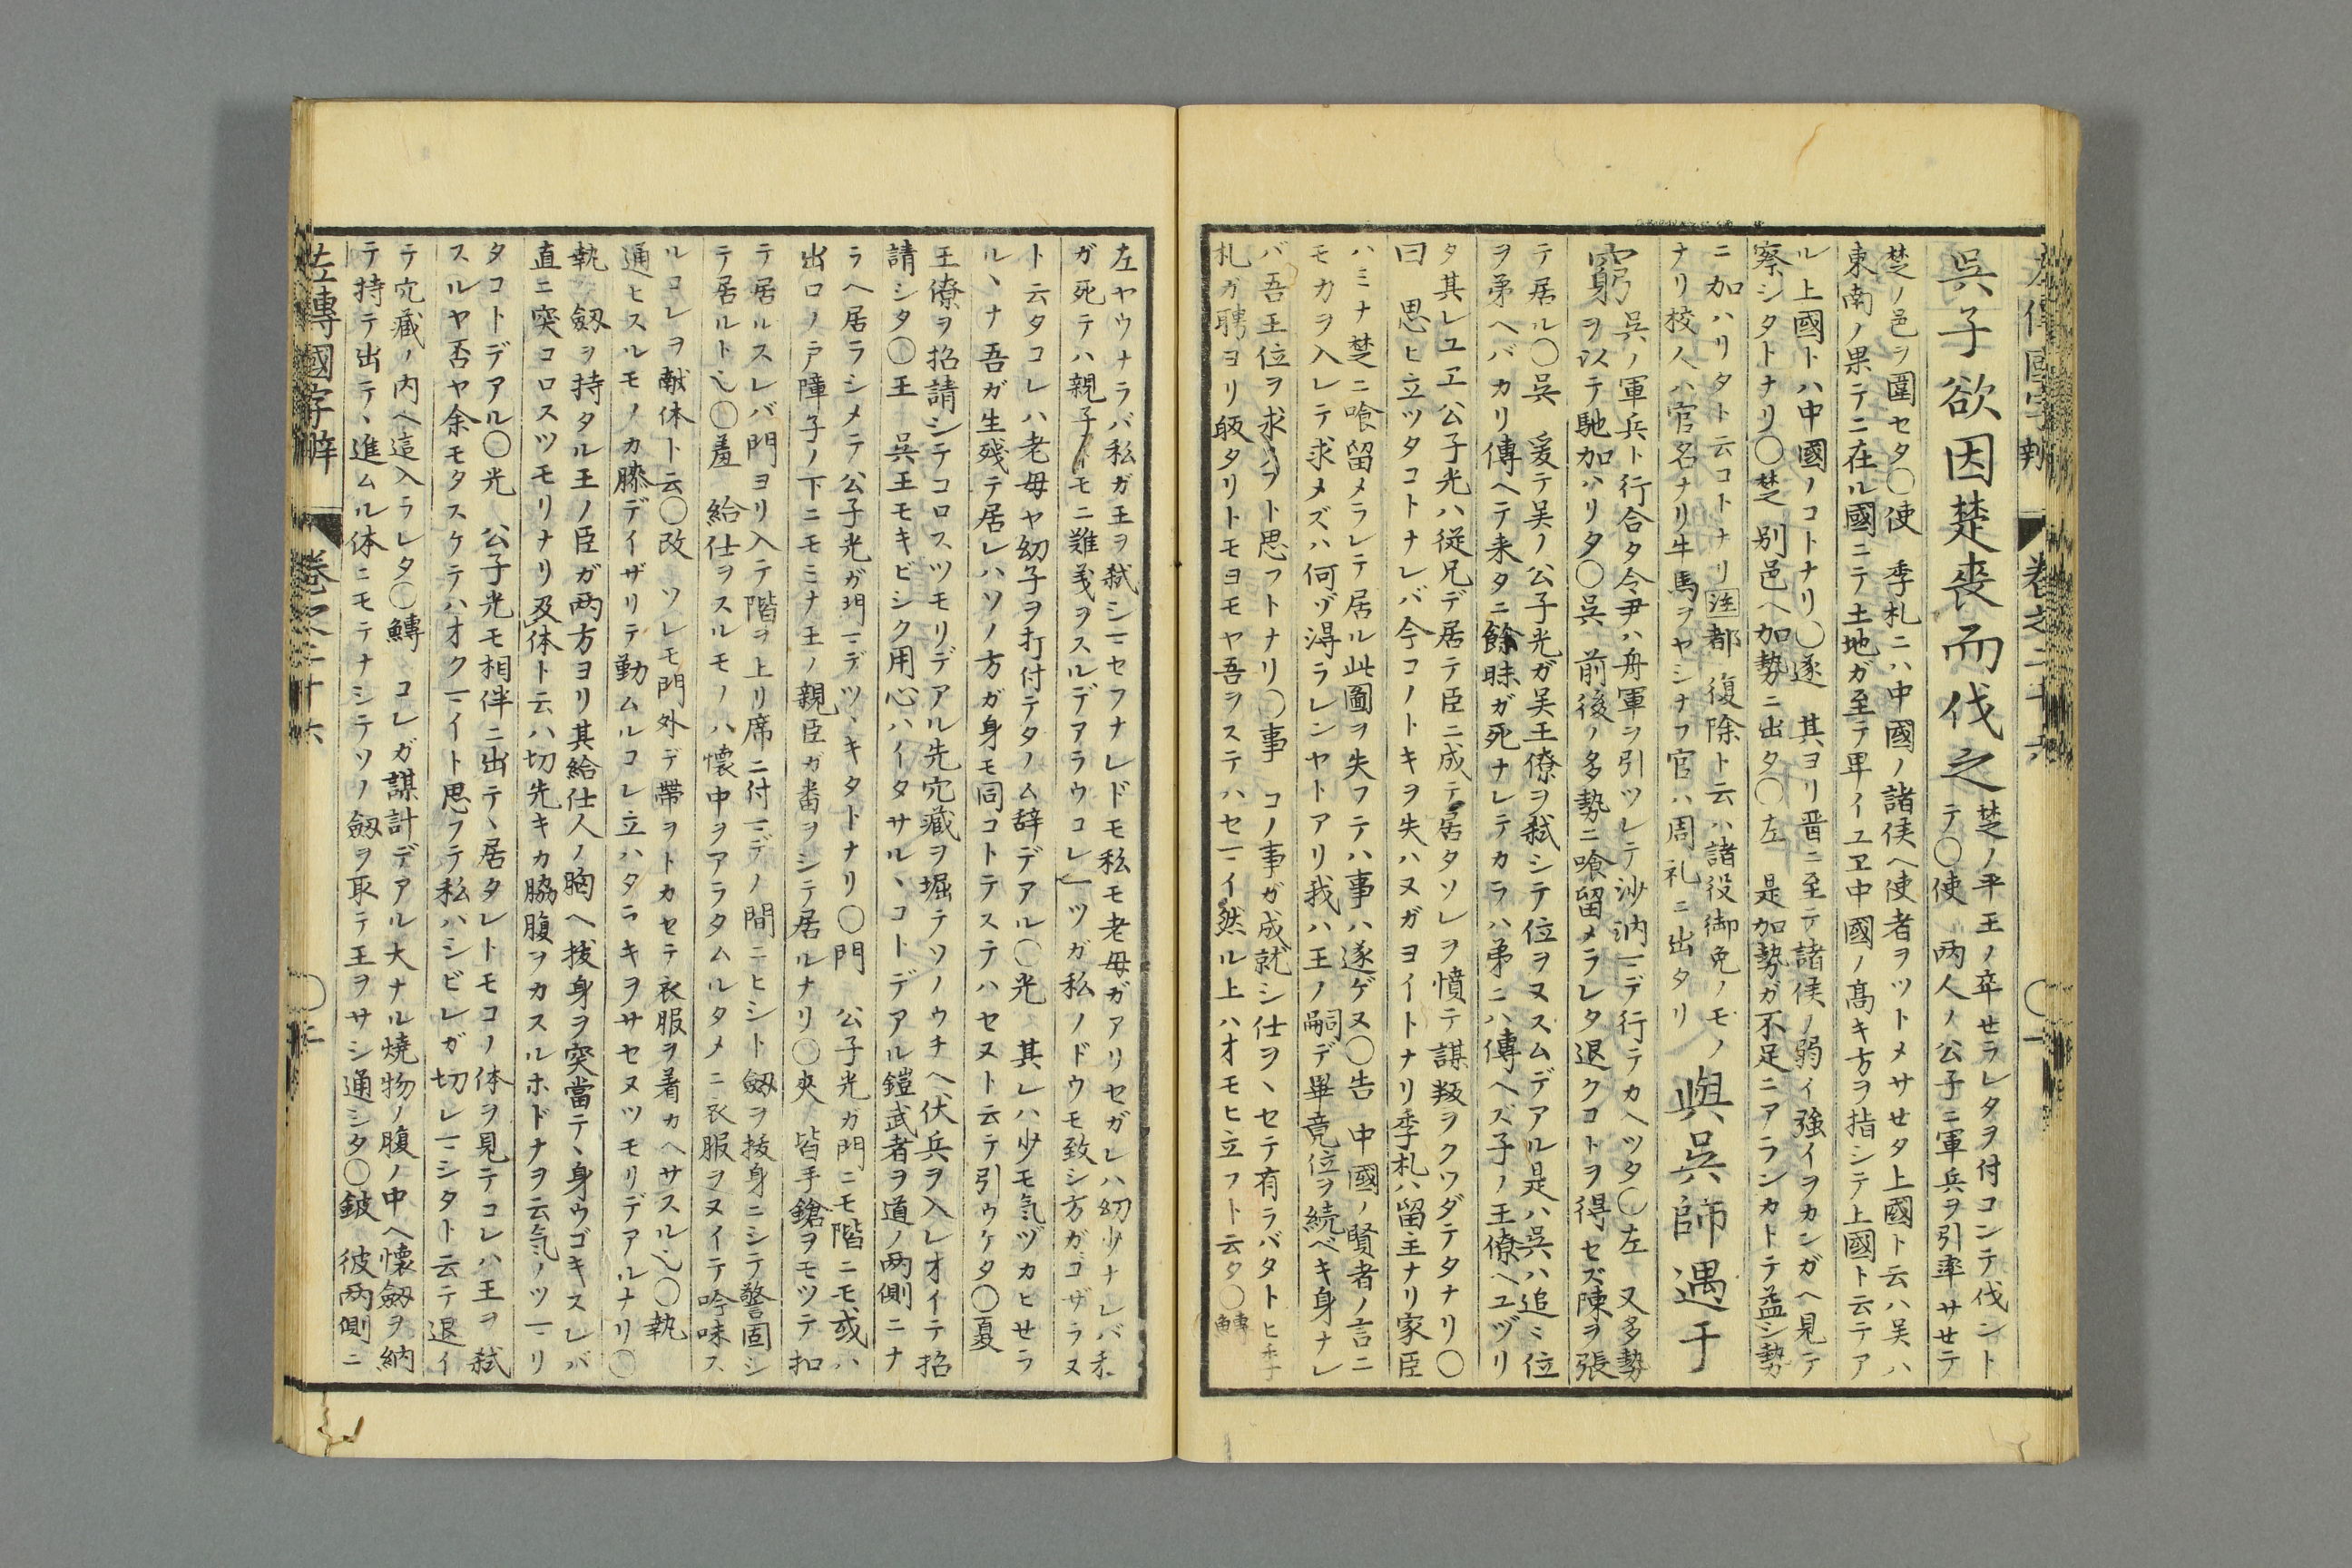 左傳國字辨 卷之二十六 〇一
呉子欲因楚喪而伐之
楚ノ平王ノ卒セラレタヲ付コンテ伐ント
テ〇使 両人ノ公子ニ軍兵ヲ引率サセテ
楚ノ邑ヲ圍セタ〇使 季札ニハ中國ノ諸侯ヘ使者ヲツトメサセタ上國ト云ハ呉ハ
東南ノ果テニ在ル國ニテ土地ガ至テ卑イユヱ中國ノ髙キ方ヲ指シテ上國ト云テア
ル上國トハ中國ノコトナリ〇遂 其ヨリ晋ニ至テ諸侯ノ弱イ強イヲカンガヘ見テ
察シタトナリ〇楚 别邑ヘ加勢ニ出タ〇左 是加勢ガ不足ニアランカトテ益シ勢
ニ加ハリタト云コトナリ注都 復除ト云ハ諸役御免ノモノ
ナリ校人ハ官名ナリ牛馬ヲヤシナフ官ハ周礼ニ出タリ
與呉師遇于
窮
呉ノ軍兵ト行合タ令尹ハ舟軍ヲ引ツレテ沙汭マデ行テカヘツタ〇左 又多勢
ヲ以テ馳加ハリタ〇呉 前後ノ多勢ニ喰留メラレタ退クコトヲ得セズ陳ヲ張
テ居ル〇呉 爰テ呉ノ公子光ガ呉王僚ヲ弑シテ位ヲヌスムデアル是ハ呉ハ追ミ位
ヲ弟ヘバカリ傳ヘテ来タニ餘昧ガ死ナレテカラハ弟ニハ傳ヘズ子ノ王僚ヘユヅリ
タ其レユヱ公子光ハ従兄デ居テ臣ニ成テ居タソレヲ憤テ謀叛ヲクワダテタナリ〇
曰 思ヒ立ツタコトナレバ今コノトキヲ失ハヌガヨイトナリ季札ハ留主ナリ家臣
ハミナ楚ニ喰留メラレテ居ル此圖ヲ失フテハ事ハ遂ゲヌ〇告 中國ノ賢者ノ言ニ
モ力ヲ入レテ求メズハ何ゾ得ラレンヤトアリ我ハ王ノ嗣デ畢竟位ヲ続ベキ身ナレ
バ吾王位ヲ求ハフト思フトナリ〇事 コノ事ガ成就シ仕ヲヽセテ有ラバタトヒ季
札ガ聘ヨリ皈タリトモヨモヤ吾ヲステハセマイ然ル上ハオモヒ立フト云タ〇鱄
左ヤウナラバ私ガ王ヲ弑シマセフナレドモ私モ老母ガアリセガレハ幼少ナレバ私
ガ死テハ親子トモニ難義ヲスルデアラウコレ一ツガ私ノドウモ致シ方ガゴザラヌ
ト云タコレハ老母ヤ幼子ヲ打付テタノム辞デアル〇光 其レハ少モ気ヅカヒセラ
ルヽナ吾ガ生残テ居レハソノ方ガ身モ同コトテステハセヌト云テ引ウケタ〇夏
王僚ヲ招請シテコロスツモリデアル先穴藏ヲ堀テソノウチヘ伏兵ヲ入レオイテ招
請シタ〇王 呉王モキビシク用心ハイタサルヽコトデアル鎧武者ヲ道ノ両側ニナ
ラヘ居ラシメテ公子光ガ門マデツヽキタトナリ〇門 公子光カ門ニモ階ニモ或ハ
出口ノ戸障子ノ下ニモミナ王ノ親臣ガ畨ヲシテ居ルナリ〇夾 皆手鎗ヲモツテ扣
テ居ルスレバ門ヨリ入テ階ヲ上リ席ニ付マデノ間ニヒシト劔ヲ抜身ニシテ警固シ
テ居ルト也〇羞 給仕ヲスルモノハ懷中ヲアラタムルタメニ衣服ヲヌイテ吟味ス
ルコレヲ献体ト云〇改 ソレモ門外デ帶ヲトカセテ衣服ヲ着カヘサスル也〇執
通ヒスルモノカ膝デイザリテ勤ムルコレ立ハタラキヲサセヌツモリデアルナリ〇
執 劔ヲ持タル王ノ臣ガ両方ヨリ其給仕人ノ胸ヘ抜身ヲ突當テヽ身ウゴキスレバ
直ニ突コロスツモリナリ及体ト云ハ切先キカ脇腹ヲカスルホドナヲ云気ノツマリ
タコトデアル〇光 公子光モ相伴ニ出テヽ居タレトモコノ体ヲ見テコレハ王ヲ弑
スルヤ否ヤ余モタスケテハオクマイト思フテ私ハシビレガ切レマシタト云テ退イ
テ穴藏ノ内ヘ這入ラレタ〇鱄 コレガ謀計デアル大ナル焼物ノ腹ノ中ヘ懷劔ヲ納
テ持テ出テヽ進ムル体ニモテナシテソノ劔ヲ取テ王ヲサシ通シタ〇鈹 彼両側ニ
左傳國字辨 卷之二十六 〇二